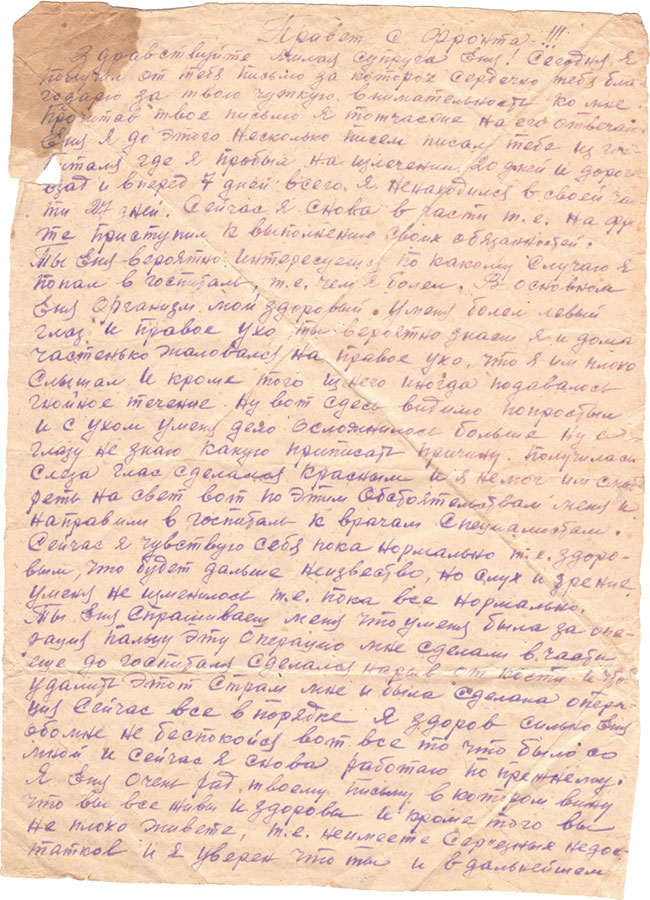 Привет с Фронта!!!
Здравствуйте милая супруга Еня! Сегодня я
получил от тебя письмо за которое сердечно тебя бла-
годарю за твою чуткую внимательность ко мне.
Прочитав твое письмо я тотчасоне на его отвечаю
Еня я до этого несколько писем писал тебе из гос-
питаля где я пробыл на излечении 20 дней и дорога
взад и вперед 7 дней всего я ненаходился в своей час-
ти 27 дней. Сейчас я снова в части т.е. на фрон-
те приступил к выполнению своих обязанностей.
Ты Еня вероятно интересуешся по какому случаю я
попал в госпиталь, т.е. чем я болел. В основном
Еня организм мой здоровый. Уменя болел левый
глаз и правое ухо ты вероятно знаеш я и дома
частенько жаловался на правое ухо, что я им плохо
слышал и кроме того из него иногда подавалось
гнойное течение. Ну вот сдесь видимо попростыл
и с ухом уменя дело осложнилось больше ну а
глазу не знаю какую приписать причину. Получилась
слеза глас сделался красным и я немог им смот-
реть на свет вот по этим обстоятельствам меня и
направили в госпиталь к врачам специалистам.
Сейчас я чувствую себя пока нормально т.е. здоро-
вым, что будет дальше неизвество, но слух и зрение
уменя не изменилось т.е. пока все нормально.
Ты Еня спрашиваеш меня что уменя была за опе-
рация пальцу эту операцию мне сделали в части
еще до госпиталя сделался нарыв от кости и чтоб
удалить этот страм мне и была сделана опера-
ция Сейчас все в порядке я здоров сильно Еня
обомне не беспокойся вот все то что было со
мной и сейчас я снова работаю по прежнему.
Я Еня очень рад твоему письму в котором вижу
что вы все живы и здоровы и кроме того вы
не плохо живете, т.е. неимеете серьезных недос-
татков и я уверен что ты и в дальнейшем